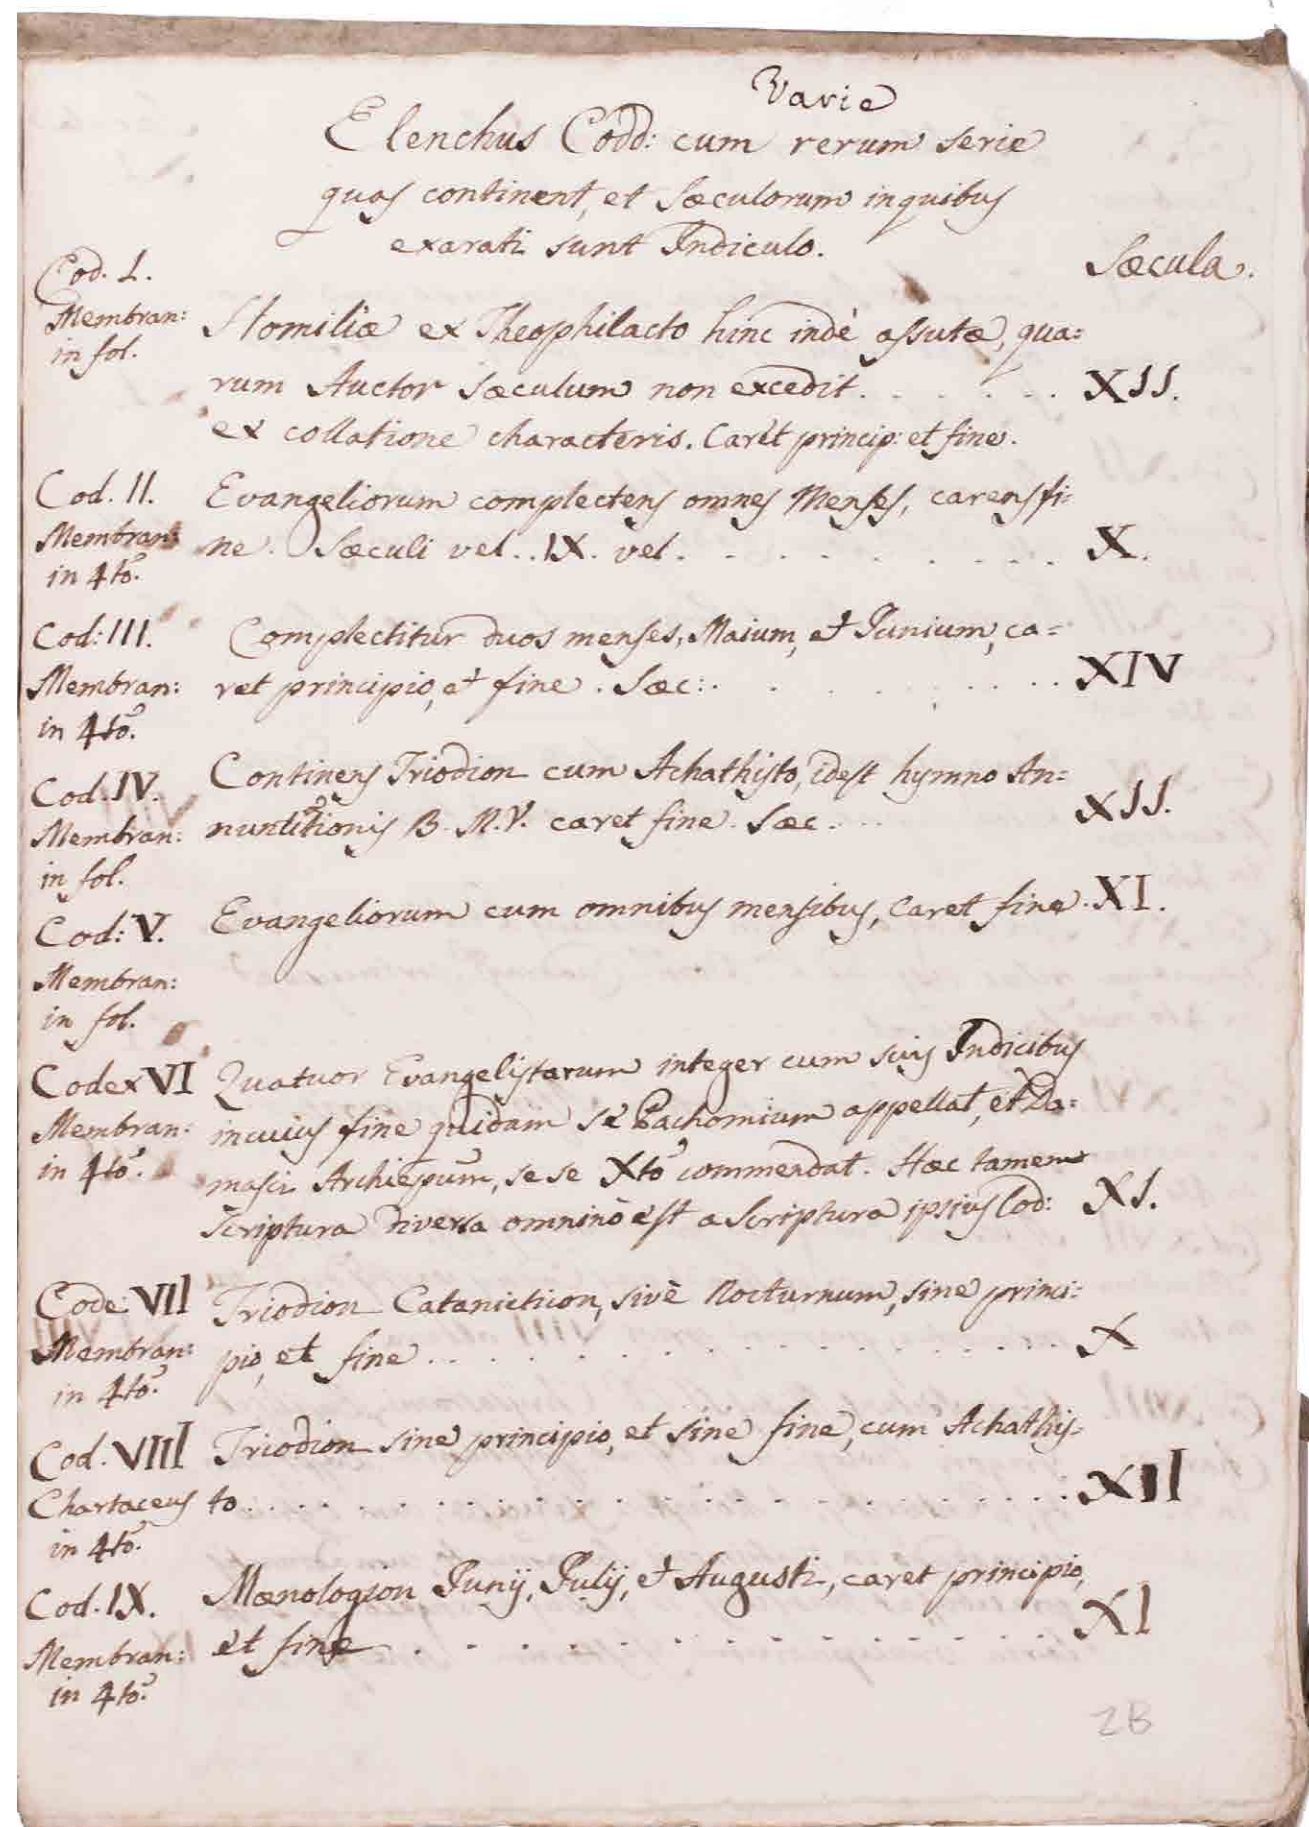 Varie
Elenchus Codd: cum rerum serie
quas continent, et Sæculorum in quibus
exarati sunt Indiculo.
Sæcula.
Cod. I.
Membran:
in fol.
Homiliæ ex Theophilacto hinc indè assutæ, qua:
rum Auctor Sæculum non excedit. . . . . . . XII.
ex collatione characteris. Caret princip: et fine.
Cod. II.
Membran:
in 4to.
Evangeliorum complectens omnes Menses, carens fi:
ne. Sæculi vel . . IX. vel . . . . . . . . . X.
Cod: III.
Membran:
in 4to.
Complectitur duos menses, Maium, et Junium, ca=
ret principio, et fine. Sæc: . . . . . . . . . XIV
Cod. IV.
Membran:
in fol.
Continens Triodion cum Achathisto, idest hymno An=
nuntiationis B. M. V. caret fine. Sæc . . . . XII.
Cod: V.
Membran:
in fol.
Evangeliorum cum omnibus mensibus, Caret fine. XI.
Codex VI
Membran:
in 4to.
Quatuor Evangelistarum integer cum suis Indicibus
in cuius fine quidam se Pachomium appellat, et Da:
masci Archiepum, se se Xto commendat. Hæc tamen
scriptura diversa omninò est a Scriptura ipsius Cod: XI.
Code: VII
Membran:
in 4to.
Triodion Catanicticon, sivè Nocturnum, sine princi:
pio, et fine . . . . . . . . . . . . . . . . X
Cod. VIII
Chartaceus
in 4to.
Triodion sine principio, et sine fine, cum Achathis:
to . . . . . . . . . . . . . . . . . . . . : XII
Cod. IX.
Membran:
in 4to.
Mænologion Junij, Julij, et Augusti, caret principio,
et fine . . . . . . . . . . . . . . . . . XI
2B